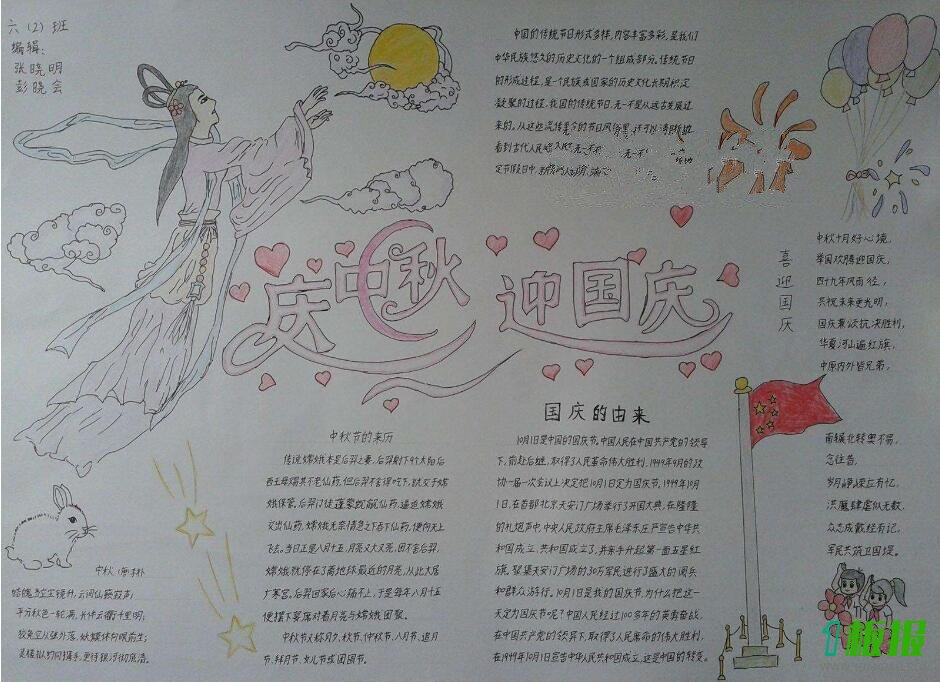 六（2）班
编辑：
张晓明
彭晓会
中国的传统节日形式多样，内容丰富多彩，是我们
中华民族悠久的历史文化的一个组成部分。传统节日
的形成过程，是一个民族或国家的历史文化长期积淀
凝聚的过程，我国的传统节日，无一不是从远古发展过
来的，从这些流传至今的节日风俗里，还可以清晰地
看到古代人民
定节假日中
庆中秋
迎国庆
喜迎国庆
中秋十月好心境，
举国欢腾迎国庆，
四十九年风雨径，
共祝未来更光明，
国庆兼颂抗决胜利，
华夏河山遍红旗，
中原内外皆兄弟，
南辕北辙果不易，
念往昔，
岁月峥嵘应有忆，
洪魔肆虐似无数，
众志成
军民共筑卫国堤。
中秋节的来历
传说嫦娥本是后羿之妻，后羿射下9个太阳后
西王母赐其不老仙药，但后羿不舍得吃下，就交于嫦
娥保管。后羿门徒蓬蒙觊觎仙药，逼迫嫦娥
交出仙药，嫦娥无奈情急之下吞下仙药，便向天上
飞去。当日正是八月十五，月亮又大又亮，因不舍后羿，
嫦娥就停在了离地球最近的月亮，从此长居
广寒宫。后羿回家后心痛不止，于是每年八月十五
便摆下宴席对着月亮与嫦娥团聚。
中秋节又称月夕，秋节，仲秋节，八月节，追月
节，拜月节，女儿节或团圆节。
国庆的由来
10月1日是中国的国庆节。中国人民在中国共产党的领导
下，前赴后继，取得了人民革命伟大胜利，1949年9月的政
协一届一次会议上决定把10月1日定为国庆节。1949年10月
1日，在首都北京天安门广场举行了开国大典，在隆隆
的礼炮声中，中央人民政府主席毛泽东庄严宣告中华共
和国成立，共和国成立了，并亲手升起第一面五星红
旗。聚集天安门广场的30万军民进行了盛大的阅兵
和群众游行。10月1日是我的国庆节，为什么把这一
天定为国庆节呢？中国人民经过100多年的英勇奋战，
在中国共产党的领导下，取得了人民革命的伟大胜利，
在1949年10月1日宣告中华人民共和国成立，这是中国的转变。
中秋（唐·李朴
皓魄当空宝镜升，云间仙籁寂无声；
平分秋色一轮满，长伴云衢千里明；
狡兔空从弦外落，妖蟆休向眼前生；
灵槎拟约同携手，更待银河彻底清。
1板报